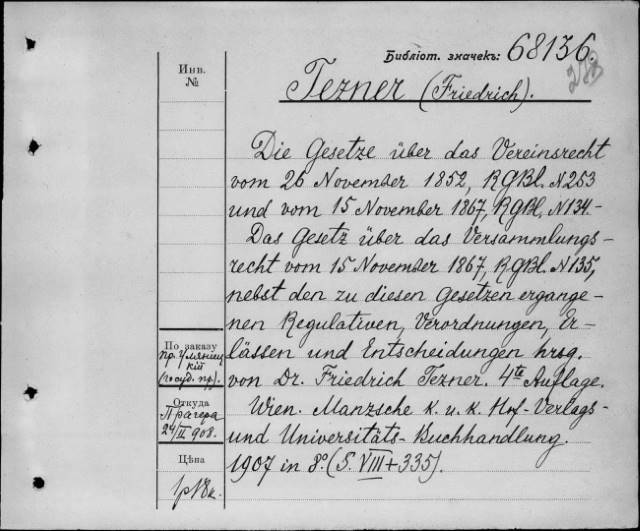 Библіот. значекъ: 68136.
Инв.
№
Tezner (Friedrich).
Die Gesetze über das Vereinsrecht
vom 26 November 1852, RGBl. N253
und vom 15 November 1867, RGBl. N134.-
Das Gesetz über das Versammlungs-
recht vom 15 November 1867, RGBl. N135,
nebst den zu diesen Gesetzen ergange-
nen Regulativen, Verordnungen, Er-
lässen und Entscheidungen hrsg.
von Dr. Friedrich Tezner. 4te Auflage.
Wien. Manzsche k. u. k. Hof-Verlags-
und Universitäts-Buchhandlung.
1907 in 8º (S. VIII+335).
По заказу
пр.
кій
(госуд. пр.).
Откуда
Прагера
24/II 908.
Цѣна
1р18к.